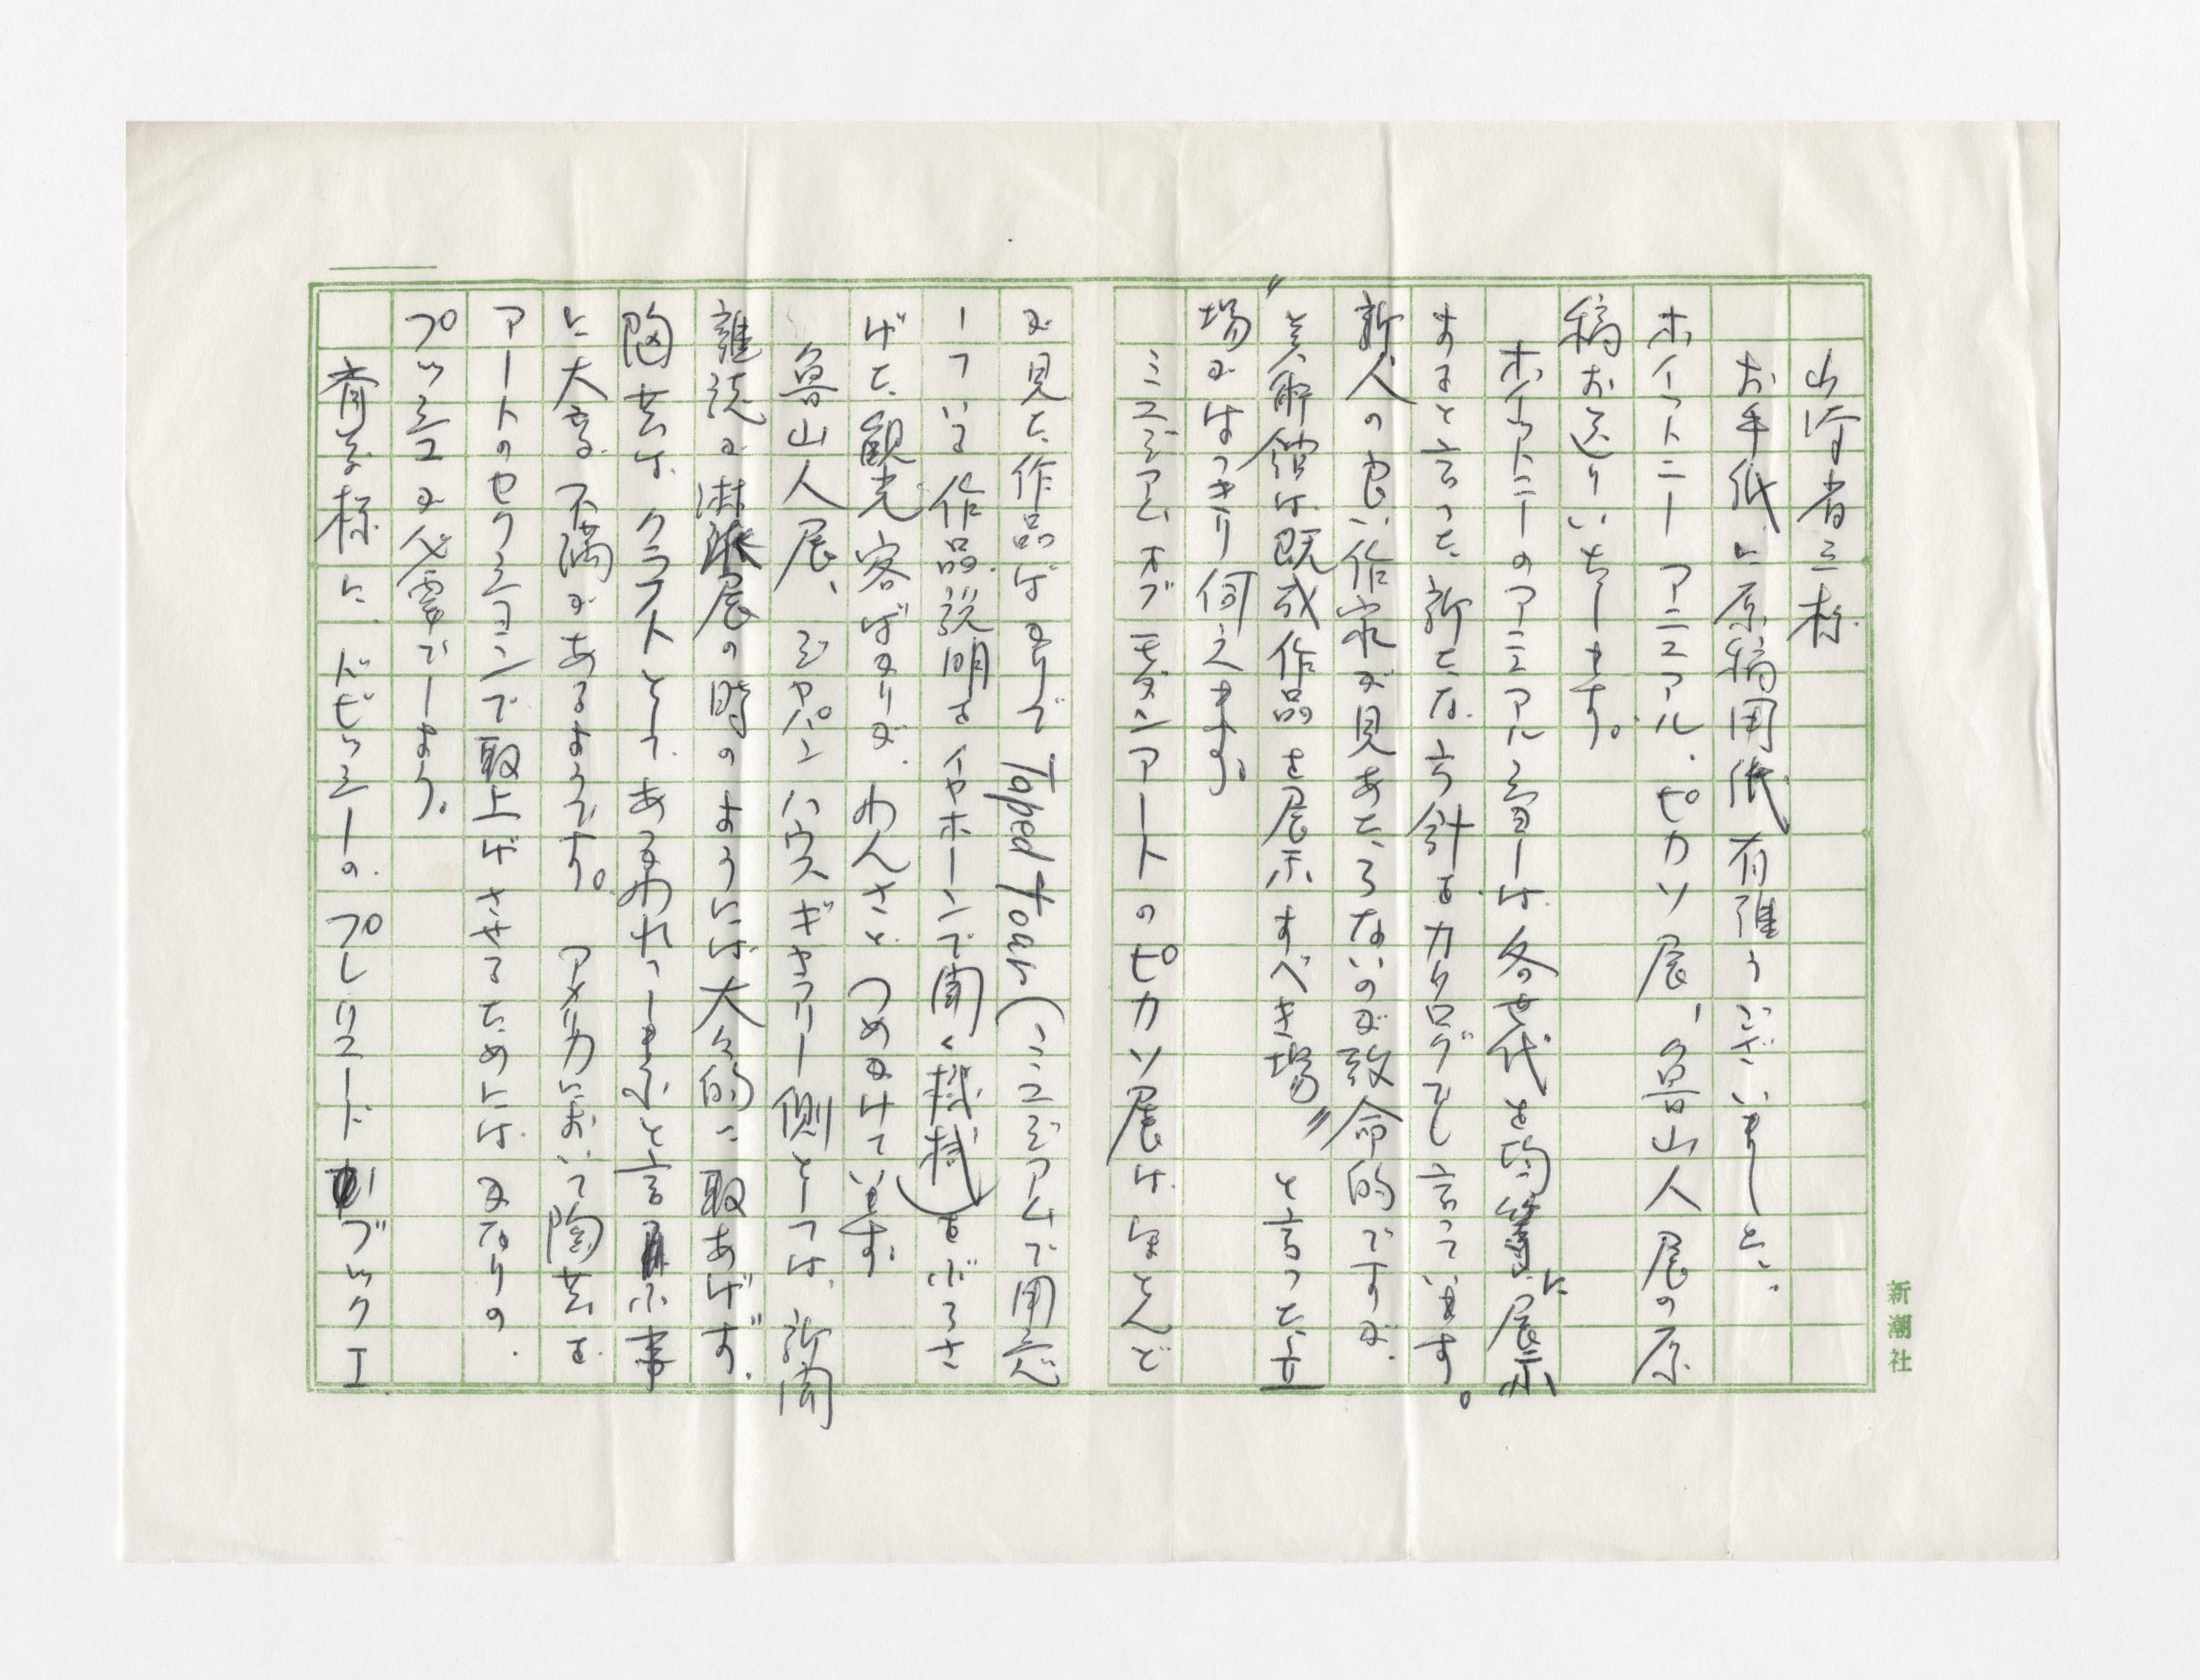 山崎省三様
お手紙と原稿用紙有難うございました。
ホイットニーアニュアル、ピカソ展、魯山人展の原
稿お送りいたします。
ホイットニーのアニュアル
は各世代を均等に展示
すると言った新たな方針をカタログでも言っています。
新人の良い作家が見あたらないのが致命的ですが、
〃美術館は既成作品を展示すべき場〃と言った立
場がはっきり伺えます。
ミュージアムオブモダンアートのピカソ展はほとんど
が見た作品ばかりで Taped tour(ミュージアムで用意
している作品説明をイヤホーンで聞く機械)をぶらさ
げた観光客ばかりが、わんさとつめかけています。
魯山人展、ジャパンハウスギャラリー側としては、新聞
雑誌が淋派展の時のようには大々的に取あげず、
陶芸はクラフトとして、あつかわれてしまうと言う事
に大変不満があるようです。アメリカにおいて陶芸を
アートのセクションで取上げさせるためにはかなりの
プッシュが必要でしょう。
斉 様に、ドビッシーのプレリュードブックI
新潮社